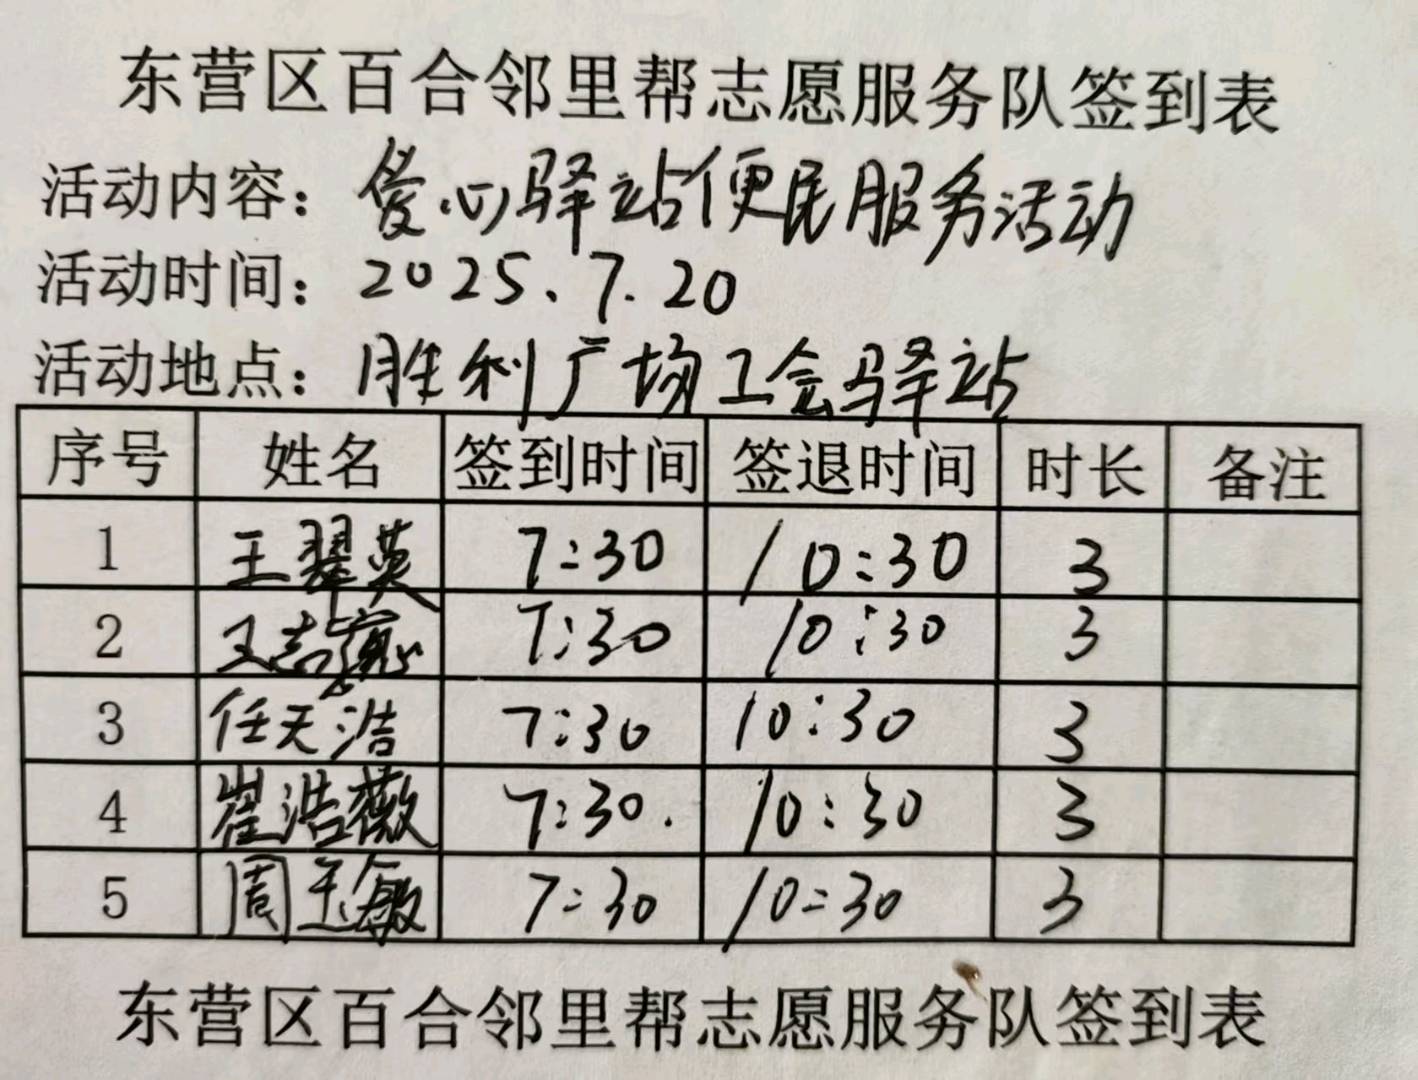 东营区百合邻里帮志愿服务队签到表
活动内容：爱心驿站便民服务活动
活动时间：2025.7.20
活动地点：胜利广场工会驿站
序号 姓名 签到时间 签退时间 时长 备注
1 王翠英 7:30 10:30 3
2 7:30 10:30 3
3 任天浩 7:30 10:30 3
4 崔浩薇 7:30. 10:30 3
5 周玉敏 7:30 10:30 3
东营区百合邻里帮志愿服务队签到表